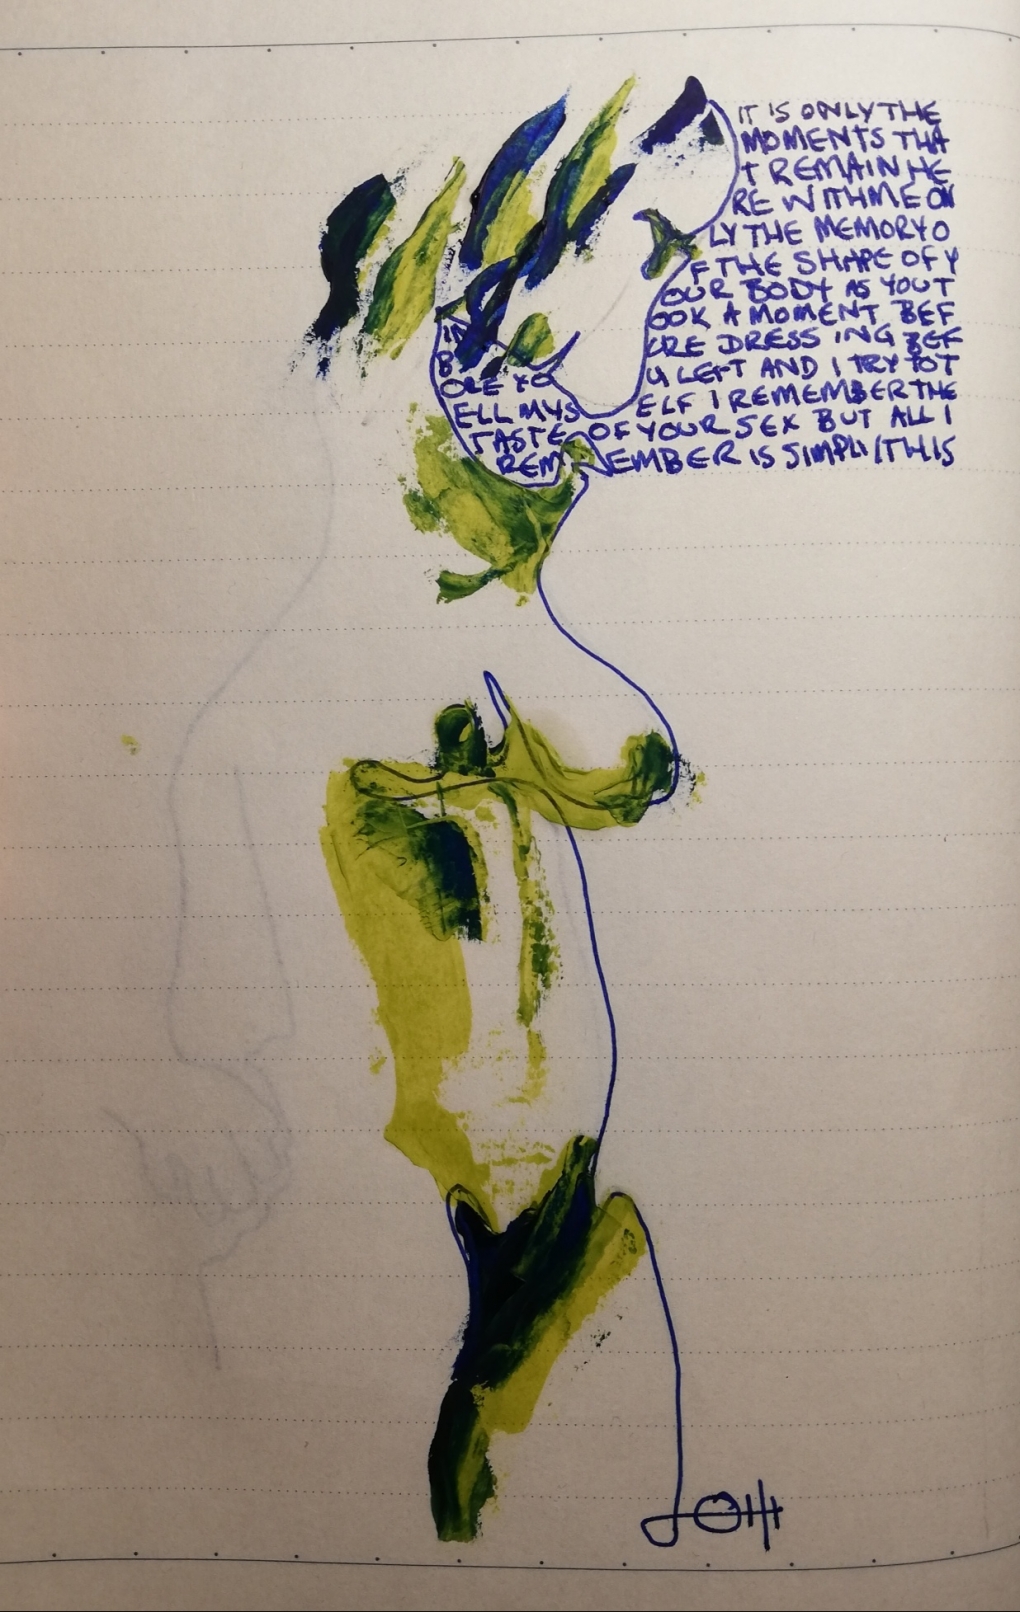 IT IS ONLY THE
MOMENTS THA
T REMAIN HE
RE WITH ME ON
LY THE MEMORY O
F THE SHAPE OF Y
OUR BODY AS YOU T
OOK A MOMENT BEF
URE DRESS ING BEF
ORE YO U LEFT AND I TRY TO T
ELL MYS ELF I REMEMBER THE
TASTE OF YOUR SEX BUT ALL I
REM EMBER IS SIMPLI/THIS